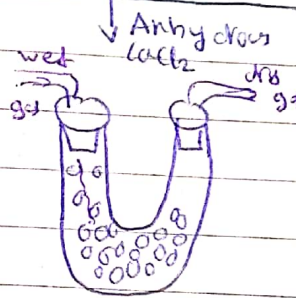 Anhydrous
CaCl2
wet
gas
dry
ga